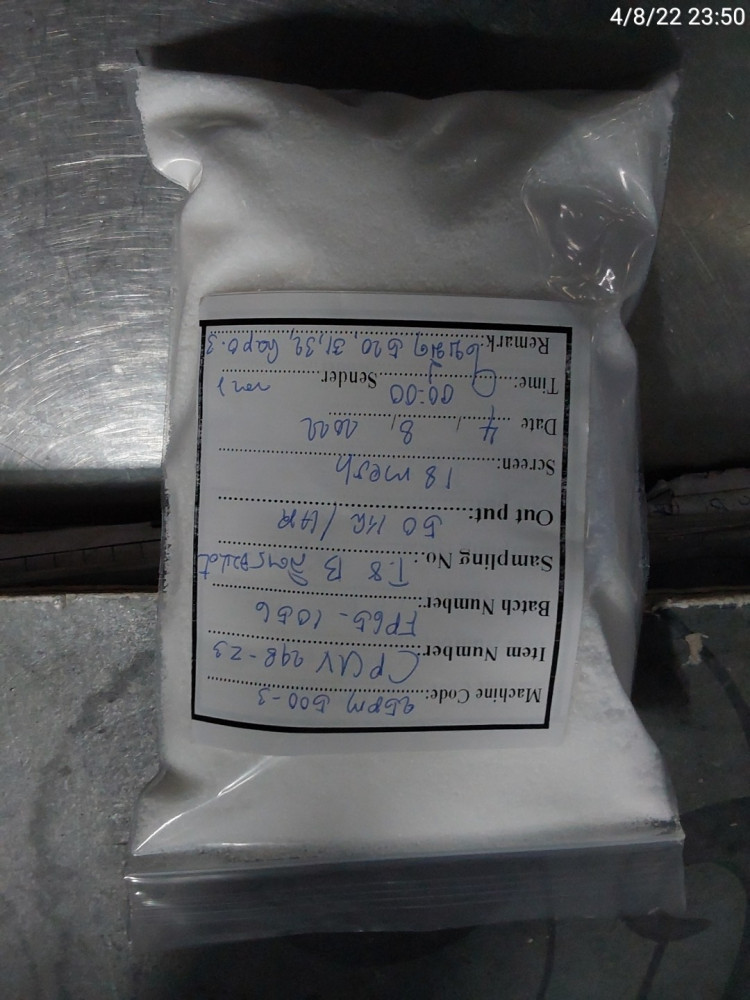 4/8/22 23:50
Machine Code: 25rpm 500-3
Item Number CPUV 298-Z3
Batch Number: FP65-1056
Sampling No.: T.8 B
Out put: 50 KG / HR
Screen: 18 mesh
Date 4 / 8 / 2022
Time: 00:00 Sender
Remark: 520, 31, 32,